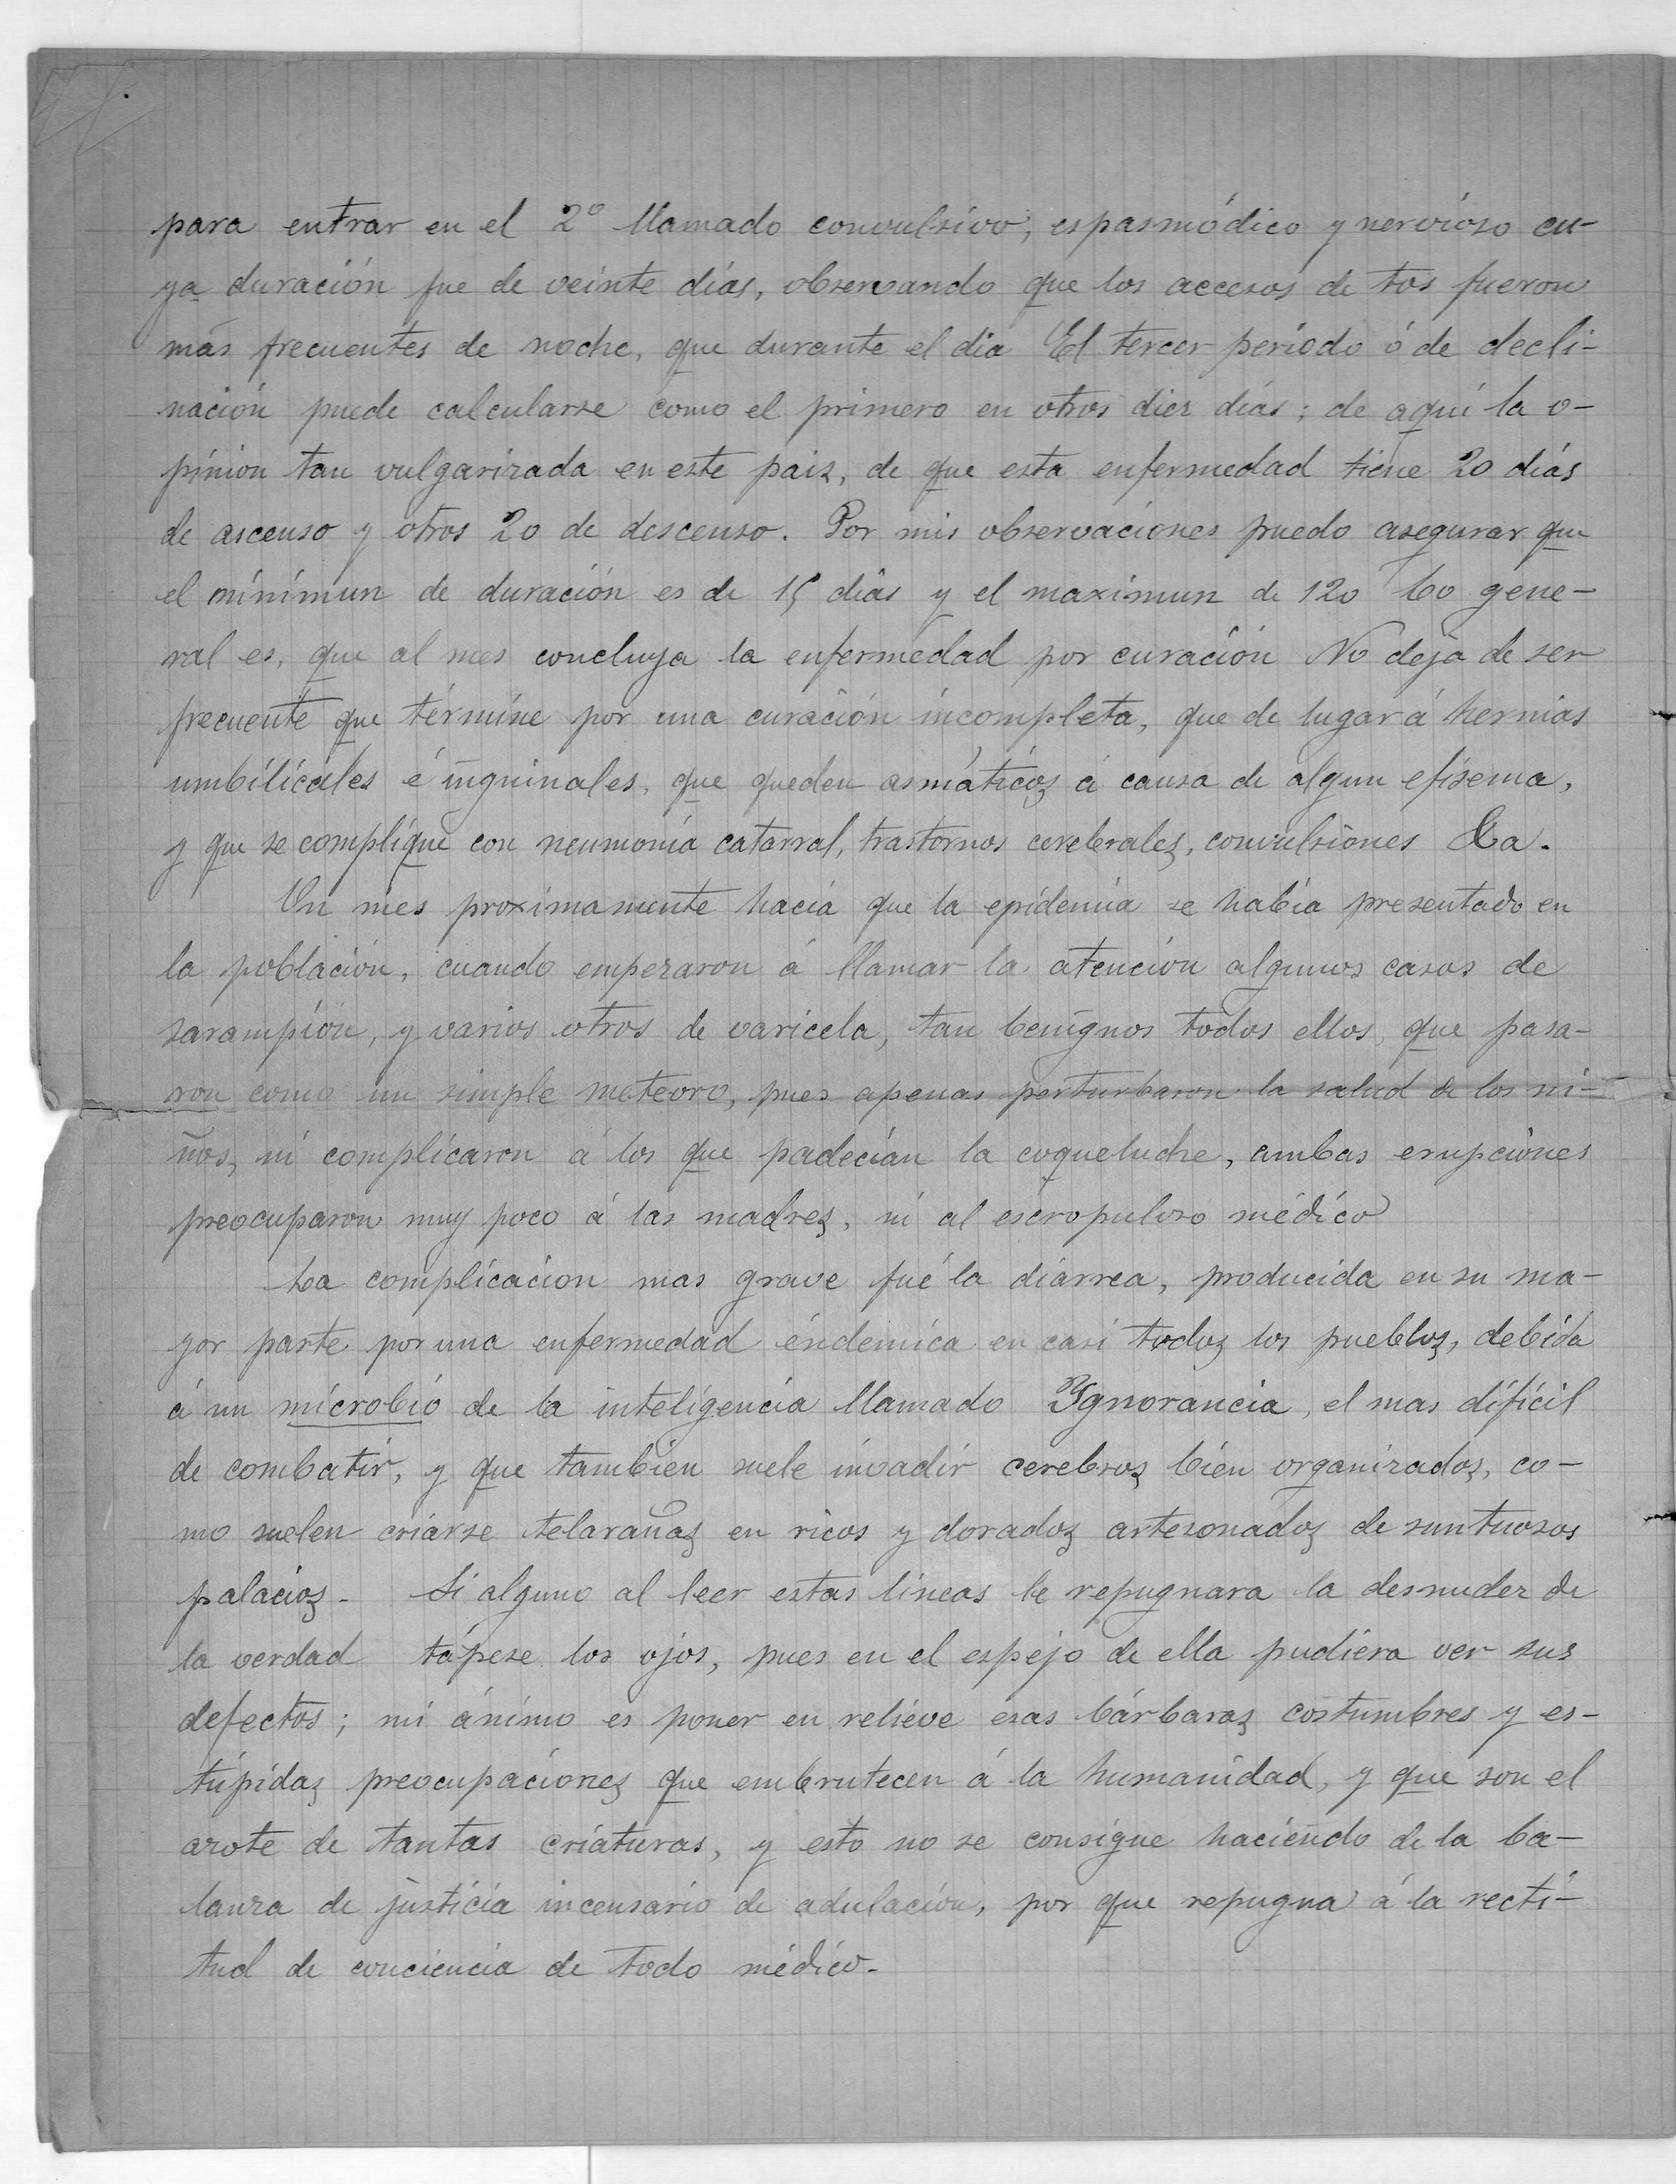 para entrar en el 2º llamado convulsivo, espasmódico y nervioso cu-
ya duración fue de veinte días, observando que los accesos de tos fueron
más frecuentes de noche, que durante el dia El tercer período ó de decli-
nación puede calcularse como el primero en otros diez días; de aquí la o-
pinion tan vulgarizada en este pais, de que esta enfermedad tiene 20 días
de ascenso y otros 20 de descenso. Por mis observaciones puedo asegurar que
el mínimun de duración es de 15 días y el maximun de 120 Lo gene-
ral es, que al mes concluya la enfermedad por curación No deja de ser
frecuente que términe por una curación incompleta, que de lugar á hernias
umbilicales é inguinales, que queden asmáticos á causa de algun efisema,
y que se complique con neumonía catarral, trastornos cerebrales, convulsiones &a.
Un mes proximamente hacia que la epidemia se había presentado en
la población, cuando empezaron á llamar la atención algunos casos de
sarampión, y varios otros de varicela, tan benignos todos ellos, que pasa-
ron como un simple meteoro, pues apenas perturbaron la salud de los ni-
ños, ni complicaron á los que padecían la coqueluche, ambas erupciones
preocuparon muy poco á las madres, ni al escropuloso médico
La complicacion mas grave fué la diarrea, producida en su ma-
yor parte por una enfermedad éndemica en casi todos los pueblos, debida
á un microbio de la inteligencia llamado Ygnorancia, el mas difícil
de combatir, y que tambien suele invadir cerebros bien organizados, co-
mo suelen criarse telarañas en ricos y dorados artesonados de suntuosos
palacios - Si alguno al leer estas lineas le repugnara la desnudez de
la verdad tápese los ojos, pues en el espejo de ella pudiera ver sus
defectos; mi ánimo es poner en relieve esas bárbaras costumbres y es-
túpidas preocupaciones que embrutecen á la humanidad, y que son el
azote de tantas criaturas, y esto no se consigue haciendo de la ba-
lanza de justicia incensario de adulación, por que repugna á la recti-
tud de conciencia de todo médico-